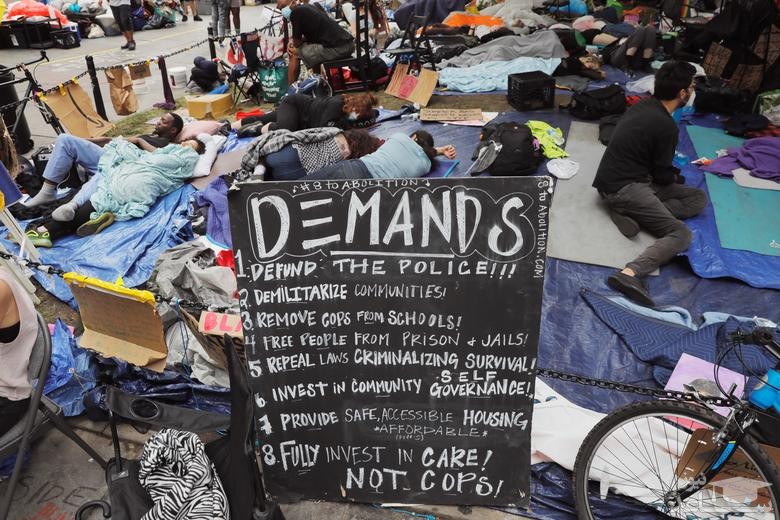 #8 to ABOLITION
8 to ABOLITION.COM
DEMANDS
1. DEFUND THE POLICE!!!
2. DEMILITARIZE COMMUNITIES!
3 REMOVE COPS FROM SCHOOLS!
4 FREE PEOPLE FROM PRISON & JAILS!
5 REPEAL LAWS CRIMINALIZING SURVIVAL!
6 INVEST IN COMMUNITY SELF GOVERNANCE!
7 PROVIDE SAFE, ACCESSIBLE HOUSING
*AFFORDABLE*
8. FULLY INVEST IN CARE!
NOT COPS!
BL